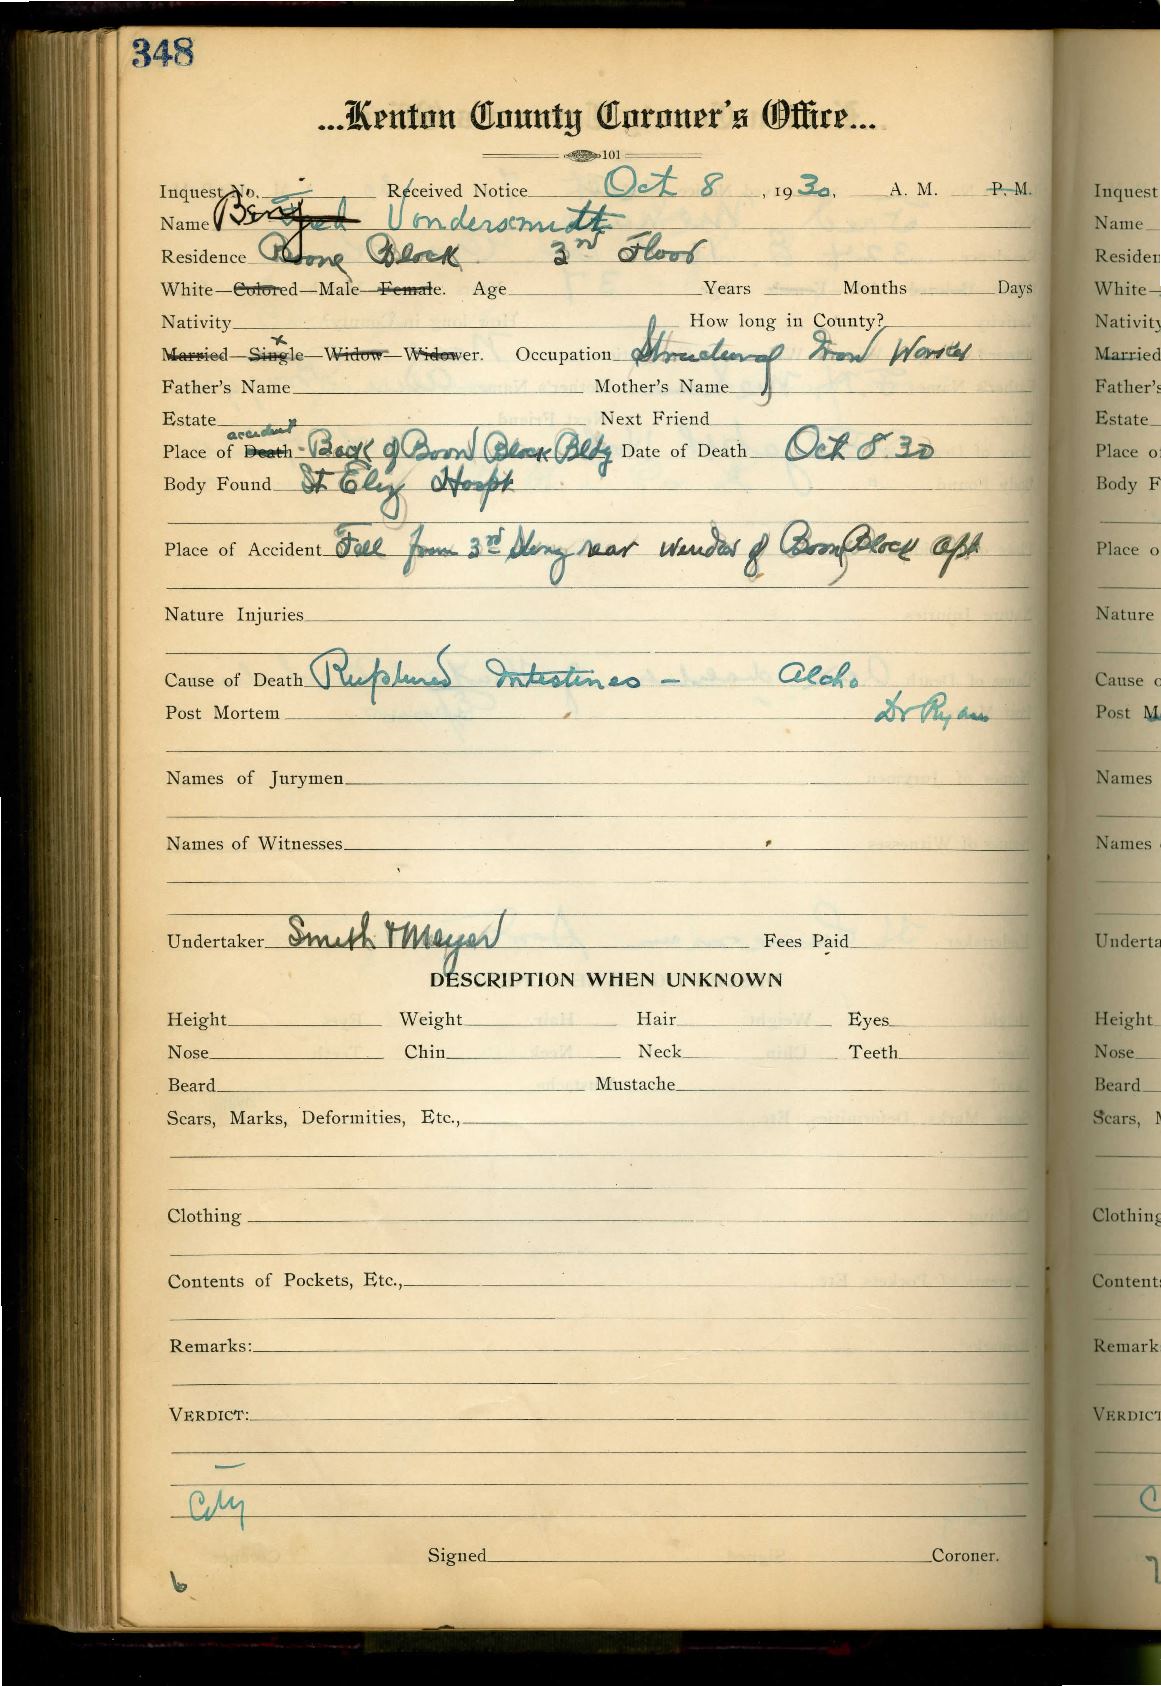 348
...Kenton County Coroner's Office...
101
Inquest No. Received Notice Oct 8, 1930, A. M. P. M.
Name Benj Fred Vondersmidt
Residence Boone Block 3rd Floor
White—Colored—Male—Female. Age Years Months Days
Nativity How long in County?
x
Married—Single—Widow—Widower. Occupation Structural Iron Worker
Father's Name Mother's Name
Estate Next Friend
accident
Place of Death - Back of Boon Block Bldg Date of Death Oct 8 30
Body Found St Eliz Hospt
Place of Accident Fell from 3rd Story rear window of Boon Block Apt
Nature Injuries
Cause of Death Ruptured Intestines - Alcho
Post Mortem Dr Ryan
Names of Jurymen
Names of Witnesses
Undertaker Smith & Meyer Fees Paid
DESCRIPTION WHEN UNKNOWN
Height Weight Hair Eyes
Nose Chin Neck Teeth
Beard Mustache
Scars, Marks, Deformities, Etc.,
Clothing
Contents of Pockets, Etc.,
Remarks:
VERDICT:
City
Signed Coroner.
6
Inquest
Name
Residen
White—
Nativity
Married
Father's
Estate
Place o
Body F
Place o
Nature
Cause o
Post M
Names
Names
Underta
Height
Nose
Beard
Scars, M
Clothing
Contents
Remark
VERDICT